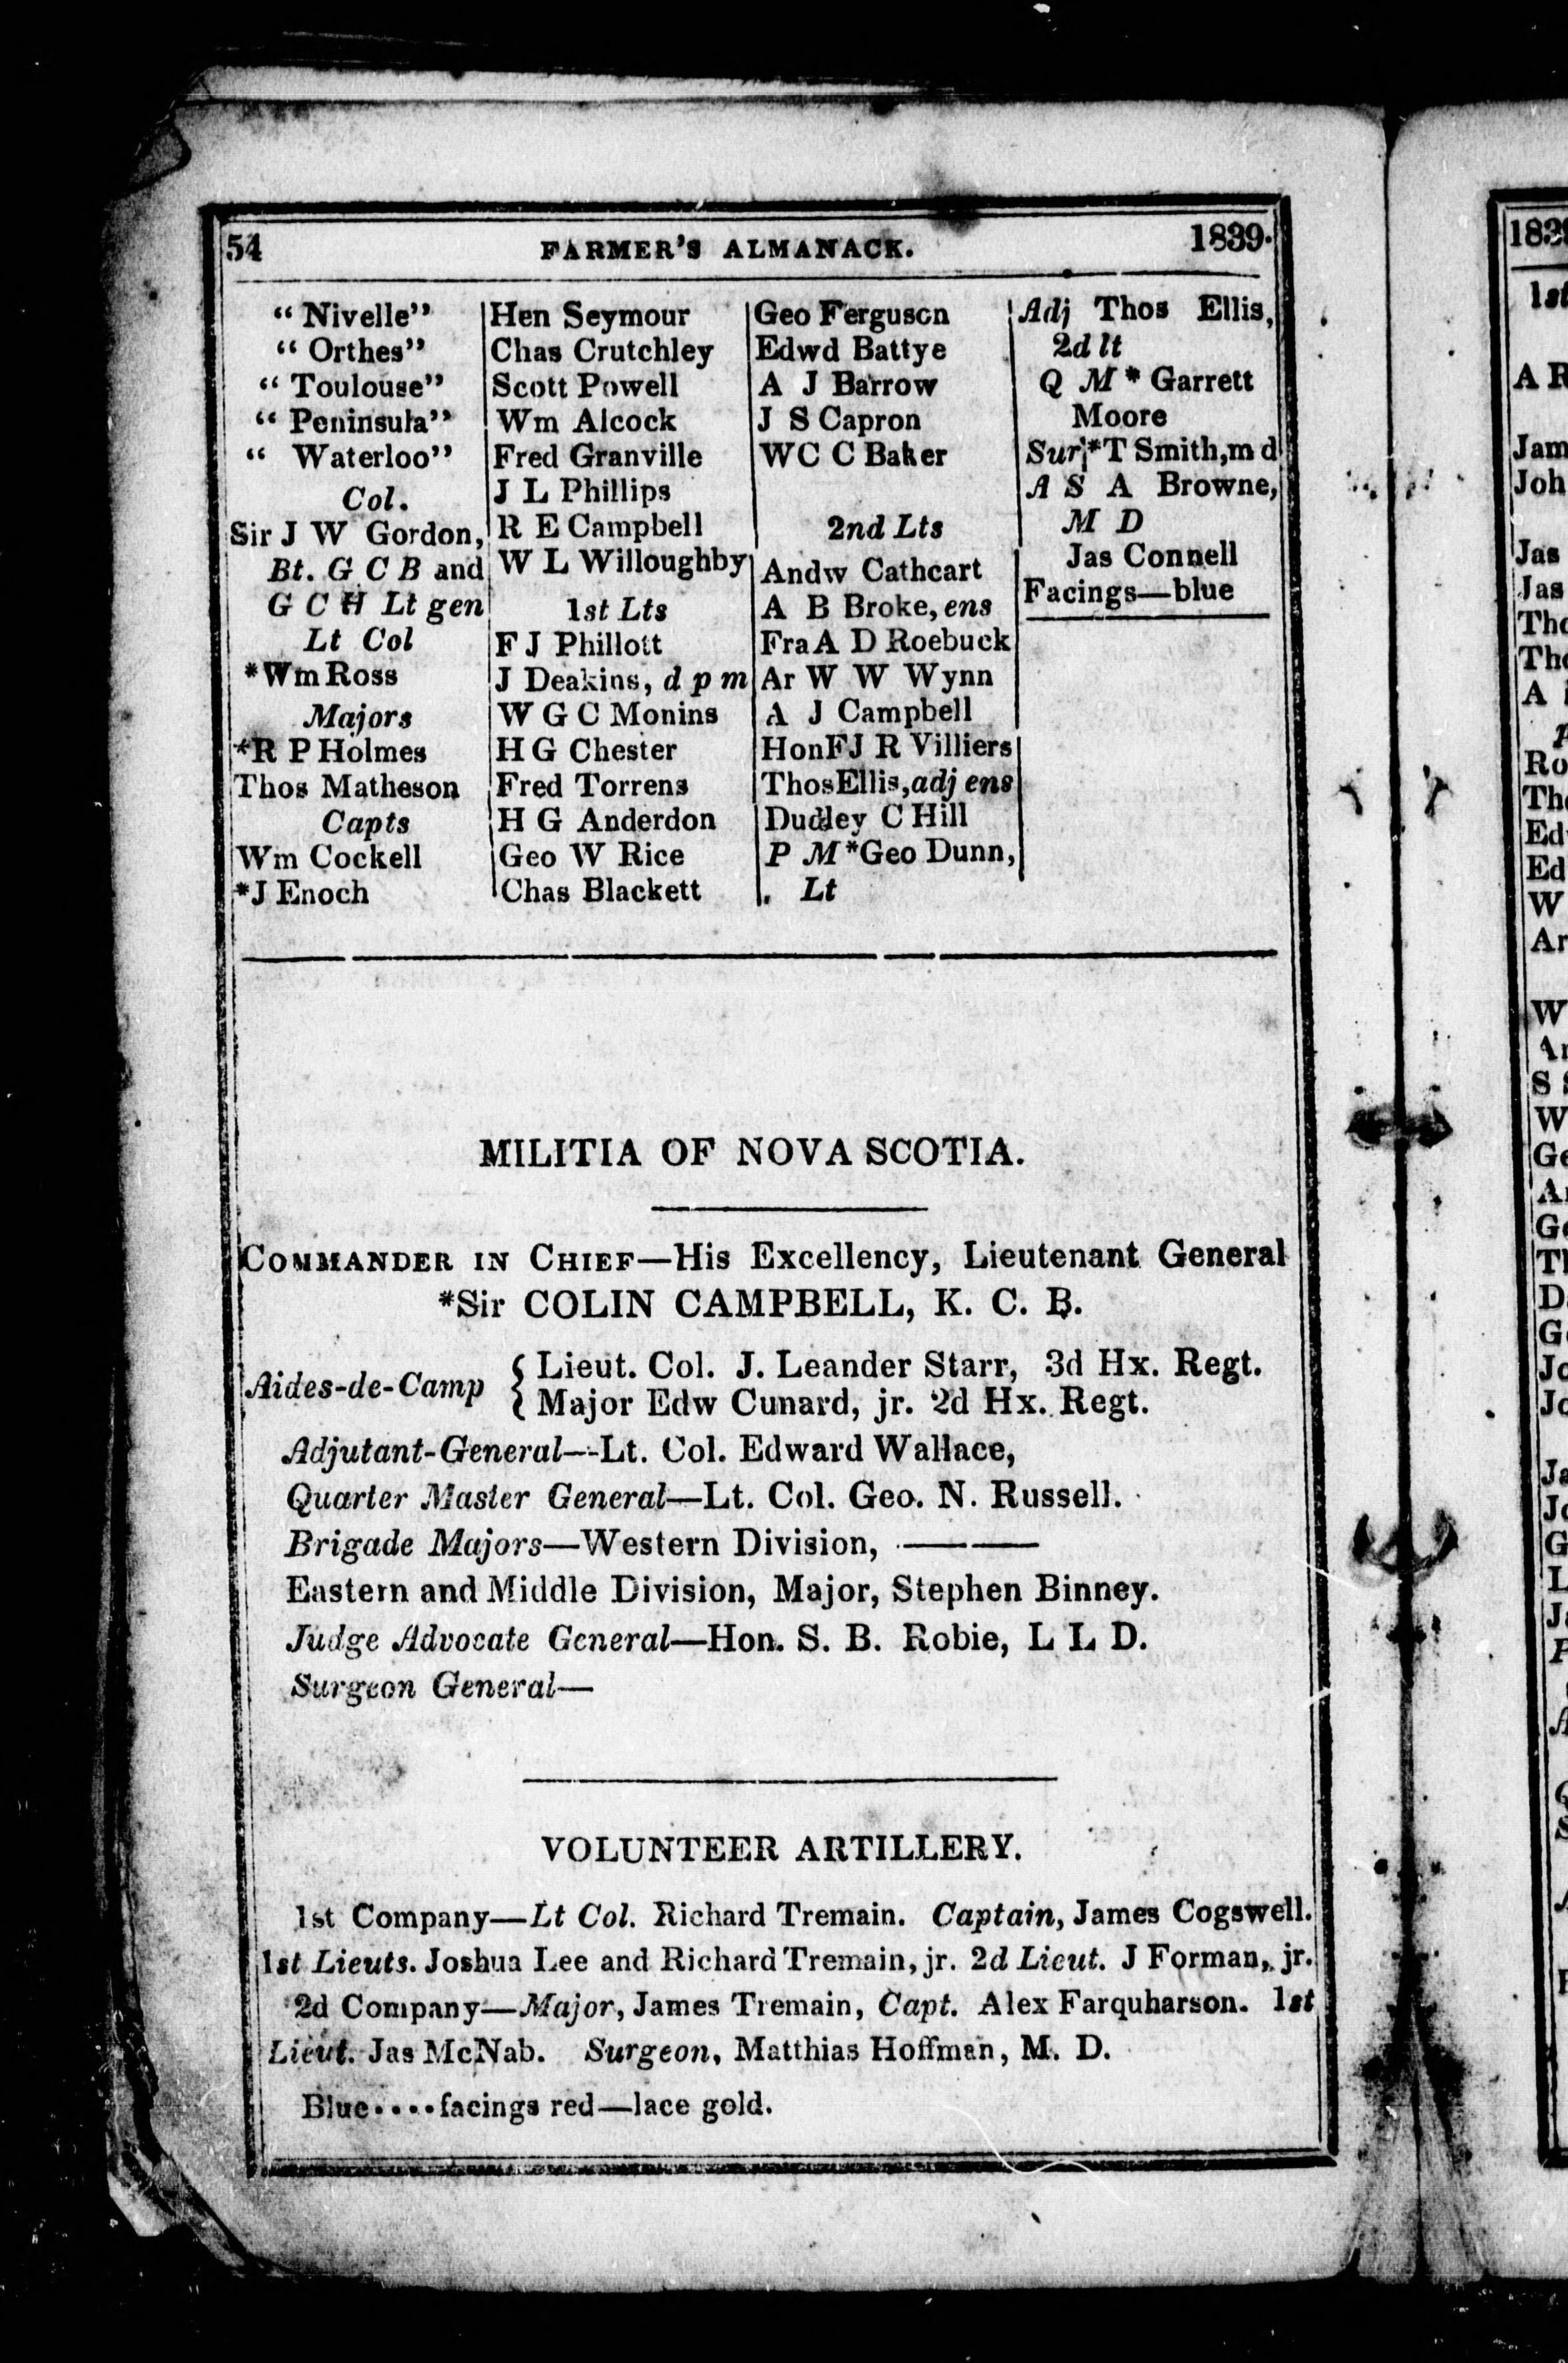 54 FARMER'S ALMANACK. 1839.
“ Nivelle”
“ Orthes”
“ Toulouse”
“ Peninsula”
“ Waterloo”
Col.
Sir J W Gordon,
Bt. G C B and
G C H Lt gen
Lt Col
*Wm Ross
Majors
*R P Holmes
Thos Matheson
Capts
Wm Cockell
*J Enoch
Hen Seymour
Chas Crutchley
Scott Powell
Wm Alcock
Fred Granville
J L Phillips
R E Campbell
W L Willoughby
1st Lts
F J Phillott
J Deakins, d p m
W G C Monins
H G Chester
Fred Torrens
H G Anderdon
Geo W Rice
Chas Blackett
Geo Ferguson
Edwd Battye
A J Barrow
J S Capron
WC C Baker
2nd Lts
Andw Cathcart
A B Broke, ens
Fra A D Roebuck
Ar W W Wynn
A J Campbell
Hon FJ R Villiers
Thos Ellis, adj ens
Dudley C Hill
P M *Geo Dunn,
Lt
Adj Thos Ellis,
2d lt
Q M * Garrett
Moore
Sur *T Smith, m d
A S A Browne,
M D
Jas Connell
Facings—blue
MILITIA OF NOVA SCOTIA.
COMMANDER IN CHIEF—His Excellency, Lieutenant General
*Sir COLIN CAMPBELL, K. C. B.
Aides-de-Camp { Lieut. Col. J. Leander Starr, 3d Hx. Regt.
Major Edw Cunard, jr. 2d Hx. Regt.
Adjutant-General—Lt. Col. Edward Wallace,
Quarter Master General—Lt. Col. Geo. N. Russell.
Brigade Majors—Western Division, ———
Eastern and Middle Division, Major, Stephen Binney.
Judge Advocate General—Hon. S. B. Robie, L L D.
Surgeon General—
VOLUNTEER ARTILLERY.
1st Company—Lt Col. Richard Tremain. Captain, James Cogswell.
1st Lieuts. Joshua Lee and Richard Tremain, jr. 2d Lieut. J Forman, jr.
2d Company—Major, James Tremain, Capt. Alex Farquharson. 1st
Lieut. Jas McNab. Surgeon, Matthias Hoffman, M. D.
Blue....facings red—lace gold.
1st
A R
Jam
Joh
Jas
Jas